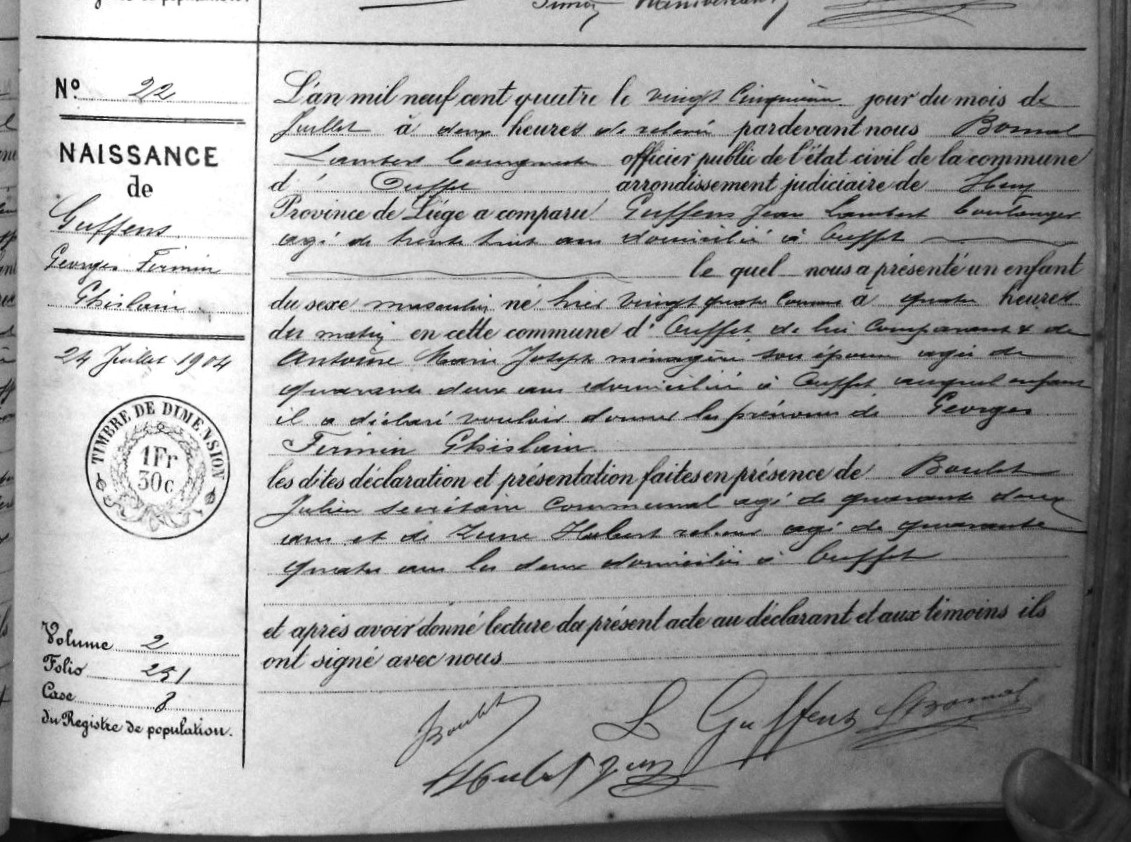 Nº 22
NAISSANCE
de
Guffens
Georges Firmin
Ghislain
24 Juillet 1904
TIMBRE DE DIMENSION
1Fr
30c
Volume 2
Folio 251
Case 8
du Registre de population.
L'an mil neuf cent quatre le vingt cinquième jour du mois de
Juillet à deux heures de relevée pardevant nous Bomal
Lambert officier public de l'état civil de la commune
d' Ouffet arrondissement judiciaire de Huy
Province de Liége a comparu Guffens Jean Lambert boulanger
agé de trente huit ans domicilié à Ouffet
le quel nous a présenté un enfant
du sexe masculin né hier vingt quatre courant à quatre heures
du matin en cette commune d' Ouffet de lui comparant & de
Antoine Marie Joseph ménagère son épouse agée de
quarante deux ans domiciliée à Ouffet auquel enfant
il a déclaré vouloir donner les prénoms de Georges
Firmin Ghislain
les dites déclaration et présentation faites en présence de Boulet
Julien secrétaire communal agé de quarante deux
ans et de Hubert agé de quarante
quatre ans les deux domiciliés à Ouffet
et après avoir donné lecture du présent acte au déclarant et aux témoins ils
ont signé avec nous
JBoulet L Guffens LBomal
Hubert